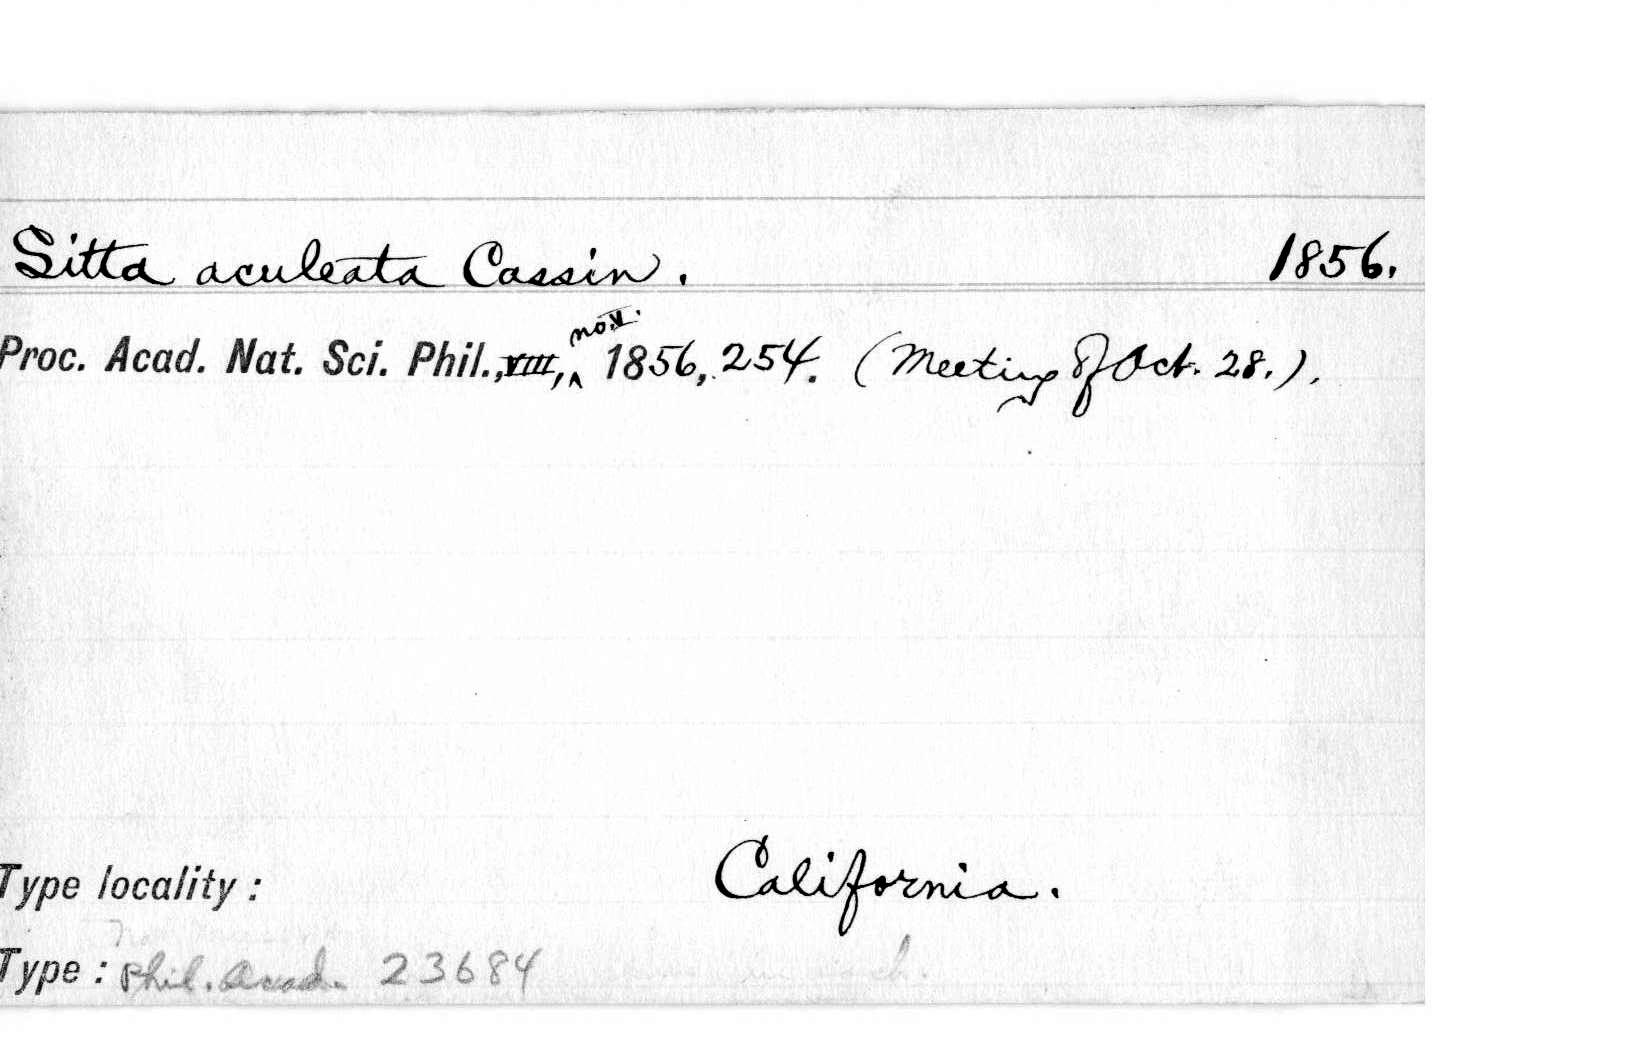 Sitta aculeata Cassin. 1856.
Proc. Acad. Nat. Sci. Phil., VIII, Nov. 1856, 254. (Meeting of Oct. 28.).
Type locality: California.
Type: Phil. Acad. 23684